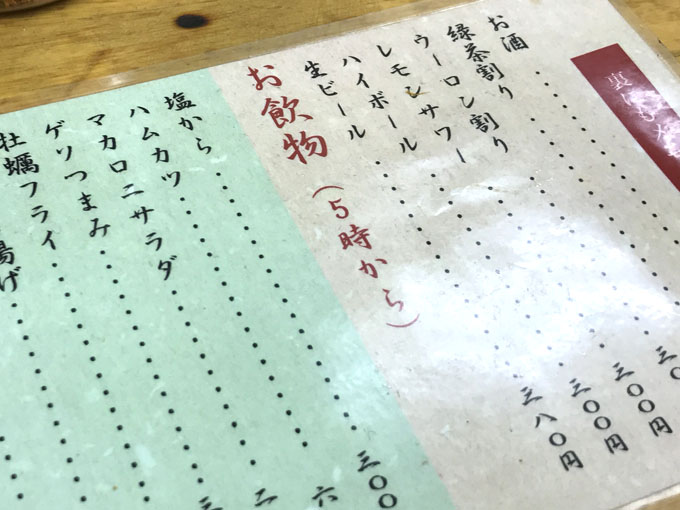 裏に
お酒
緑茶割り
ウーロン割り 三〇
レモンサワー 三〇〇円
ハイボール 三〇〇円
生ビール 三八〇円
お飲物(5時から)
塩から 三〇〇
ハムカツ 六
マカロニサラダ 二
ゲソつまみ 三
牡蠣フライ
揚げ